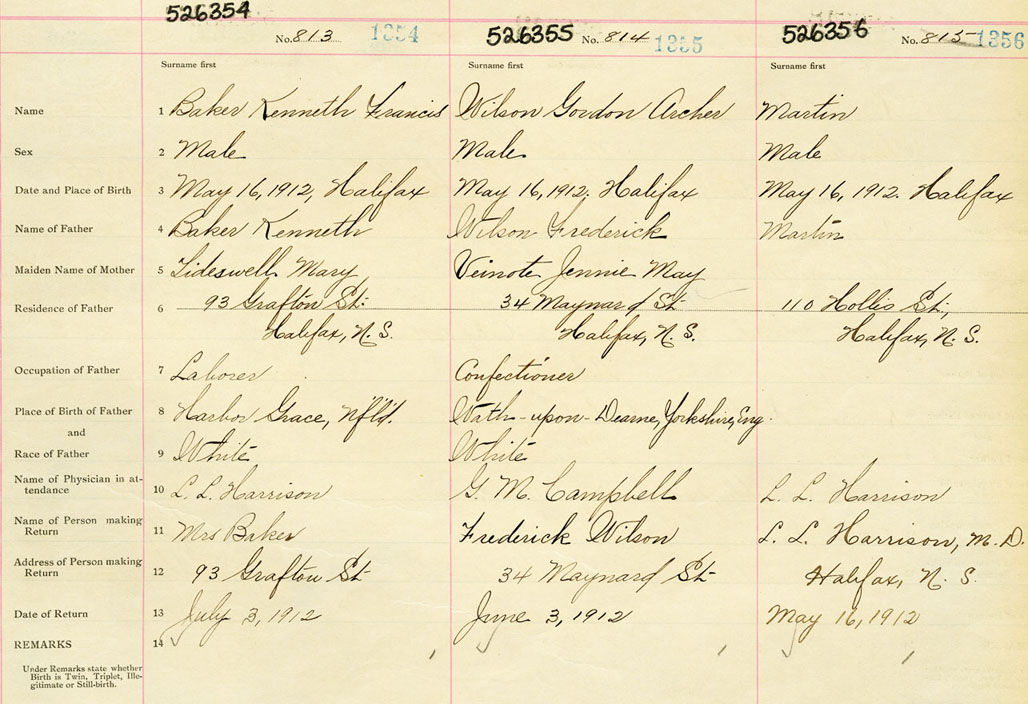 526354 No. 813 1354 526355 No. 814 1355 526356 No. 815 1356
Surname first Surname first Surname first
Name 1 Baker Kenneth Francis Wilson Gordon Archer Martin
Sex 2 Male Male Male
Date and Place of Birth 3 May 16, 1912, Halifax May 16, 1912. Halifax May 16, 1912. Halifax
Name of Father 4 Baker Kenneth Wilson Frederick Martin
Maiden Name of Mother 5 Lideswell Mary Veinote Jennie May
Residence of Father 6 93 Grafton St. 34 Maynard St. 110 Hollis St.,
Halifax, N. S. Halifax, N. S. Halifax, N. S.
Occupation of Father 7 Laborer Confectioner
Place of Birth of Father 8 Harbor Grace, Nfld. Wath-upon-Dearne, Yorkshire, Eng.
and
Race of Father 9 White White
Name of Physician in at-
tendance 10 L. L. Harrison G. M. Campbell L. L. Harrison
Name of Person making
Return 11 Mrs Baker Frederick Wilson L. L. Harrison, M. D.
Address of Person making
Return 12 93 Grafton St 34 Maynard St Halifax, N. S.
Date of Return 13 July 3, 1912 June 3, 1912 May 16, 1912
REMARKS 14
Under Remarks state whether
Birth is Twin, Triplet, Ille-
gitimate or Still-birth.